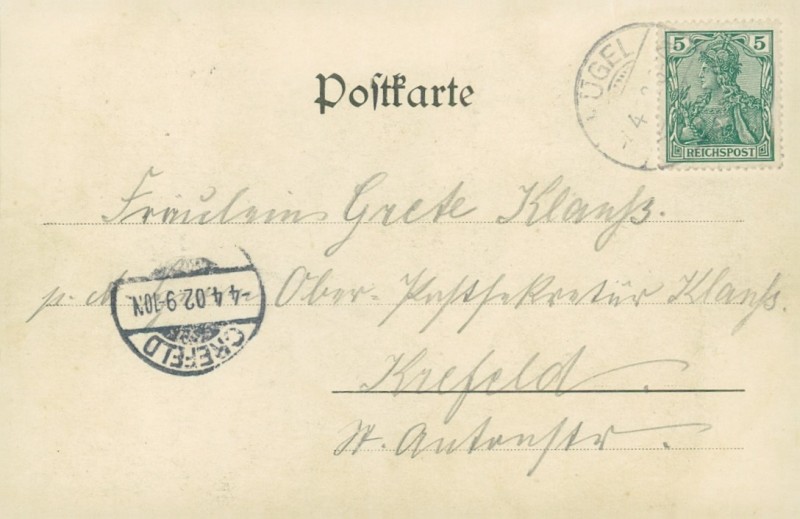 Postkarte
5 5
REICHSPOST
ÜGEL
4
Fräulein Grete Klauß.
p. Ober-Postsekretär Klauß.
4.4.02.9-10N.
CREFELD
Krefeld.
St. Antonstr.